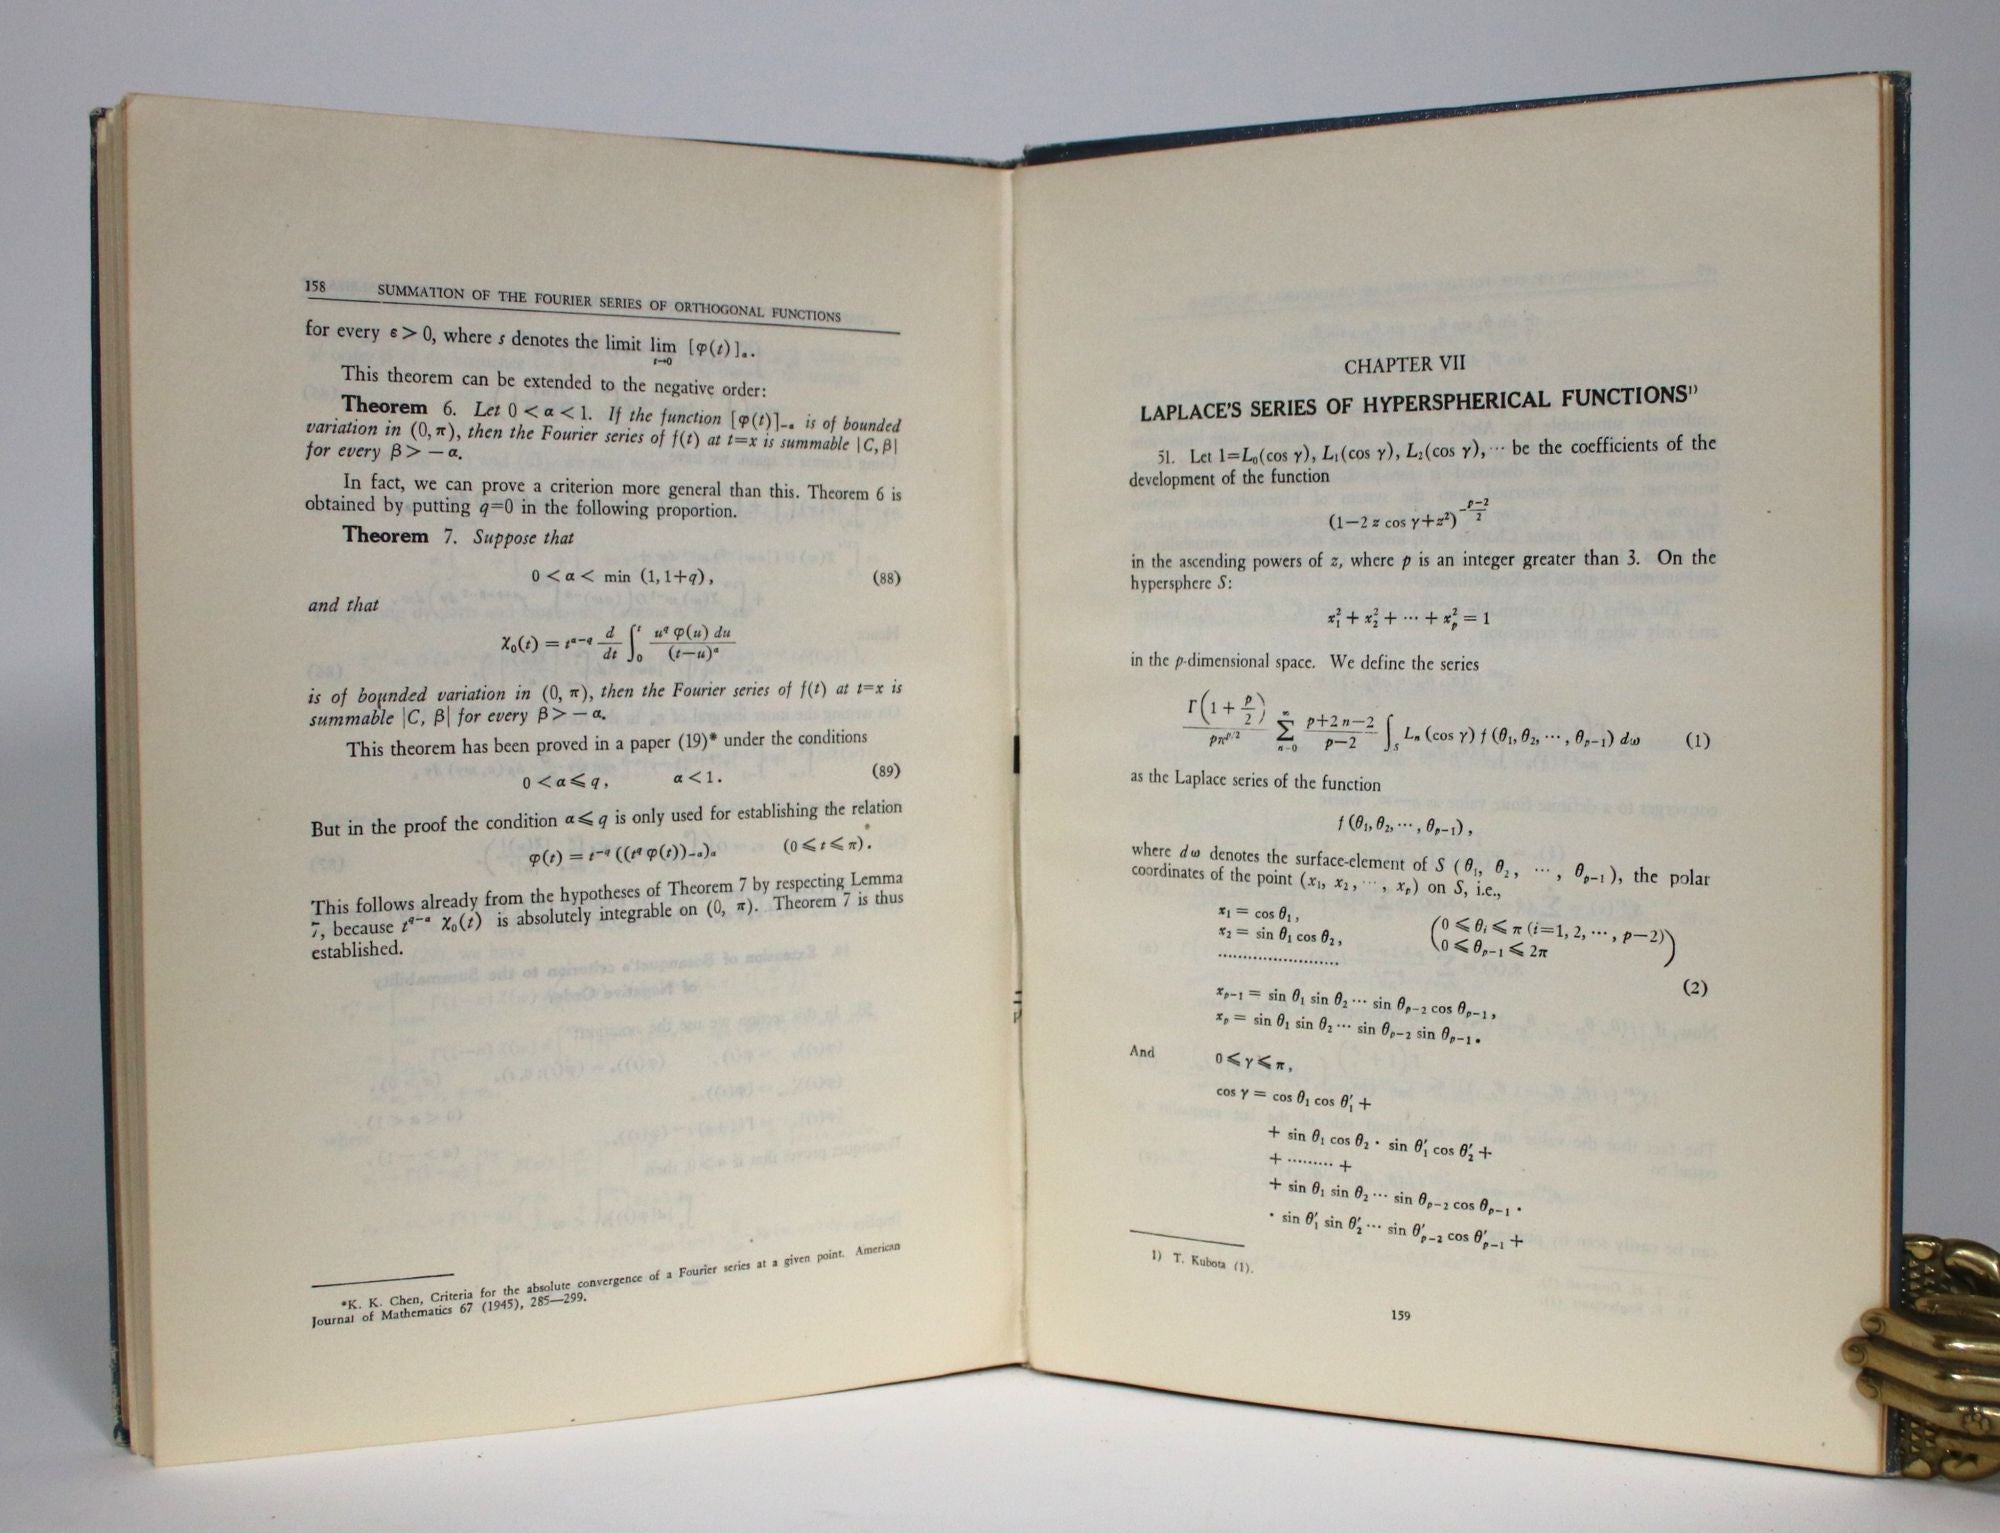 158 SUMMATION OF THE FOURIER SERIES OF ORTHOGONAL FUNCTIONS
for every ε > 0, where s denotes the limit lim_{t→0} [φ(t)]_α.
This theorem can be extended to the negative order:
Theorem 6. Let 0 < α < 1. If the function [φ(t)]_{-α} is of bounded
variation in (0, π), then the Fourier series of f(t) at t=x is summable |C, β|
for every β > − α.
In fact, we can prove a criterion more general than this. Theorem 6 is
obtained by putting q=0 in the following proportion.
Theorem 7. Suppose that
0 < α < min (1, 1+q), (88)
and that
χ₀(t) = t^{α−q} d/dt ∫₀^t u^q φ(u) du / (t−u)^α
is of bounded variation in (0, π), then the Fourier series of f(t) at t=x is
summable |C, β| for every β > − α.
This theorem has been proved in a paper (19)* under the conditions
0 < α ⩽ q, α < 1. (89)
But in the proof the condition α ⩽ q is only used for establishing the relation
φ(t) = t^{−q} ((t^q φ(t))_{−α})_α (0 ⩽ t ⩽ π).
This follows already from the hypotheses of Theorem 7 by respecting Lemma
7, because t^{q−α} χ₀(t) is absolutely integrable on (0, π). Theorem 7 is thus
established.
*K. K. Chen, Criteria for the absolute convergence of a Fourier series at a given point. American
Journal of Mathematics 67 (1945), 285—299.
CHAPTER VII
LAPLACE'S SERIES OF HYPERSPHERICAL FUNCTIONS¹⁾
51. Let 1=L₀(cos γ), L₁(cos γ), L₂(cos γ), ··· be the coefficients of the
development of the function
(1−2 z cos γ+z²)^{−(p−2)/2}
in the ascending powers of z, where p is an integer greater than 3. On the
hypersphere S:
x₁² + x₂² + ··· + x_p² = 1
in the p-dimensional space. We define the series
Γ(1 + p/2) / pπ^{p/2} ∑_{n=0}^∞ (p+2n−2)/(p−2) ∫_S L_n (cos γ) f (θ₁, θ₂, ··· , θ_{p−1}) dω (1)
as the Laplace series of the function
f (θ₁, θ₂, ··· , θ_{p−1}),
where dω denotes the surface-element of S (θ₁, θ₂, ··· , θ_{p−1}), the polar
coordinates of the point (x₁, x₂, ··· , x_p) on S, i.e.,
x₁ = cos θ₁,
x₂ = sin θ₁ cos θ₂, (0 ⩽ θ_i ⩽ π (i=1, 2, ··· , p−2)
0 ⩽ θ_{p−1} ⩽ 2π)
·······················
(2)
x_{p−1} = sin θ₁ sin θ₂ ··· sin θ_{p−2} cos θ_{p−1},
x_p = sin θ₁ sin θ₂ ··· sin θ_{p−2} sin θ_{p−1}.
And 0 ⩽ γ ⩽ π,
cos γ = cos θ₁ cos θ′₁ +
+ sin θ₁ cos θ₂ · sin θ′₁ cos θ′₂ +
+ ········· +
+ sin θ₁ sin θ₂ ··· sin θ_{p−2} cos θ_{p−1} ·
· sin θ′₁ sin θ′₂ ··· sin θ′_{p−2} cos θ′_{p−1} +
1) T. Kubota (1).
159